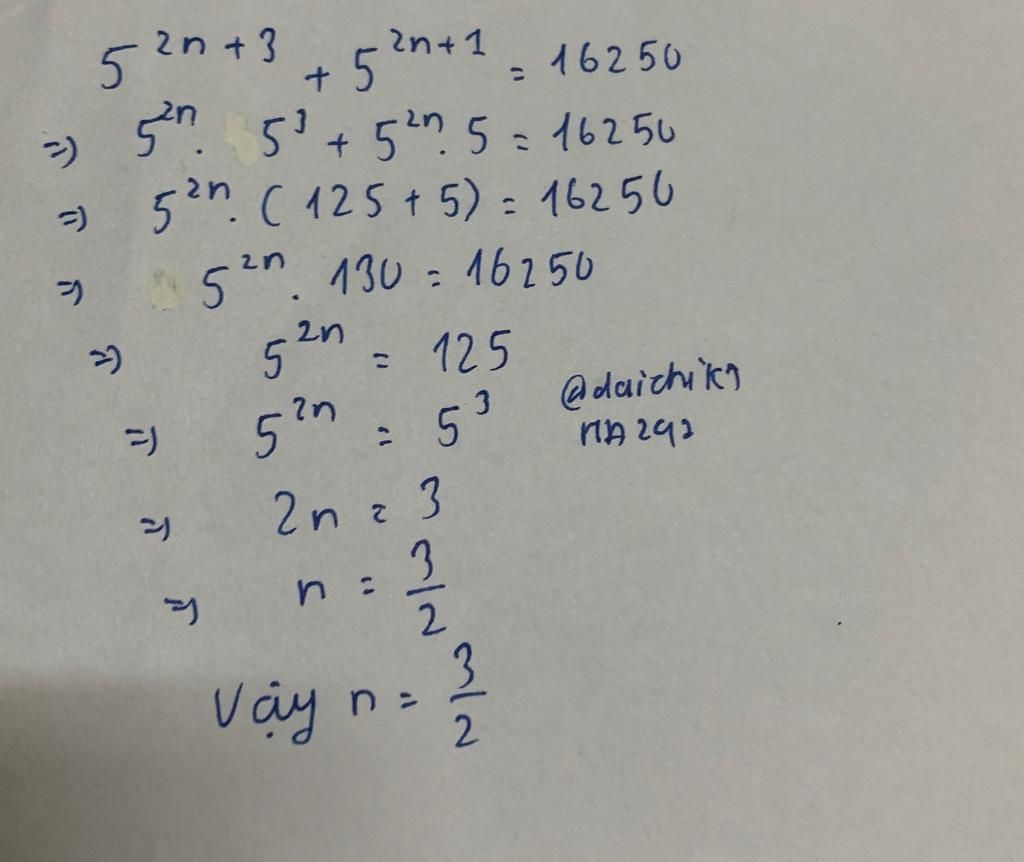 5^{2n+3} + 5^{2n+1} = 16250
=> 5^{2n} . 5^3 + 5^{2n} . 5 = 16250
=> 5^{2n} . (125 + 5) = 16250
=> 5^{2n} . 130 = 16250
=> 5^{2n} = 125
=> 5^{2n} = 5^3
=> 2n = 3
=> n = 3/2
Vậy n = 3/2